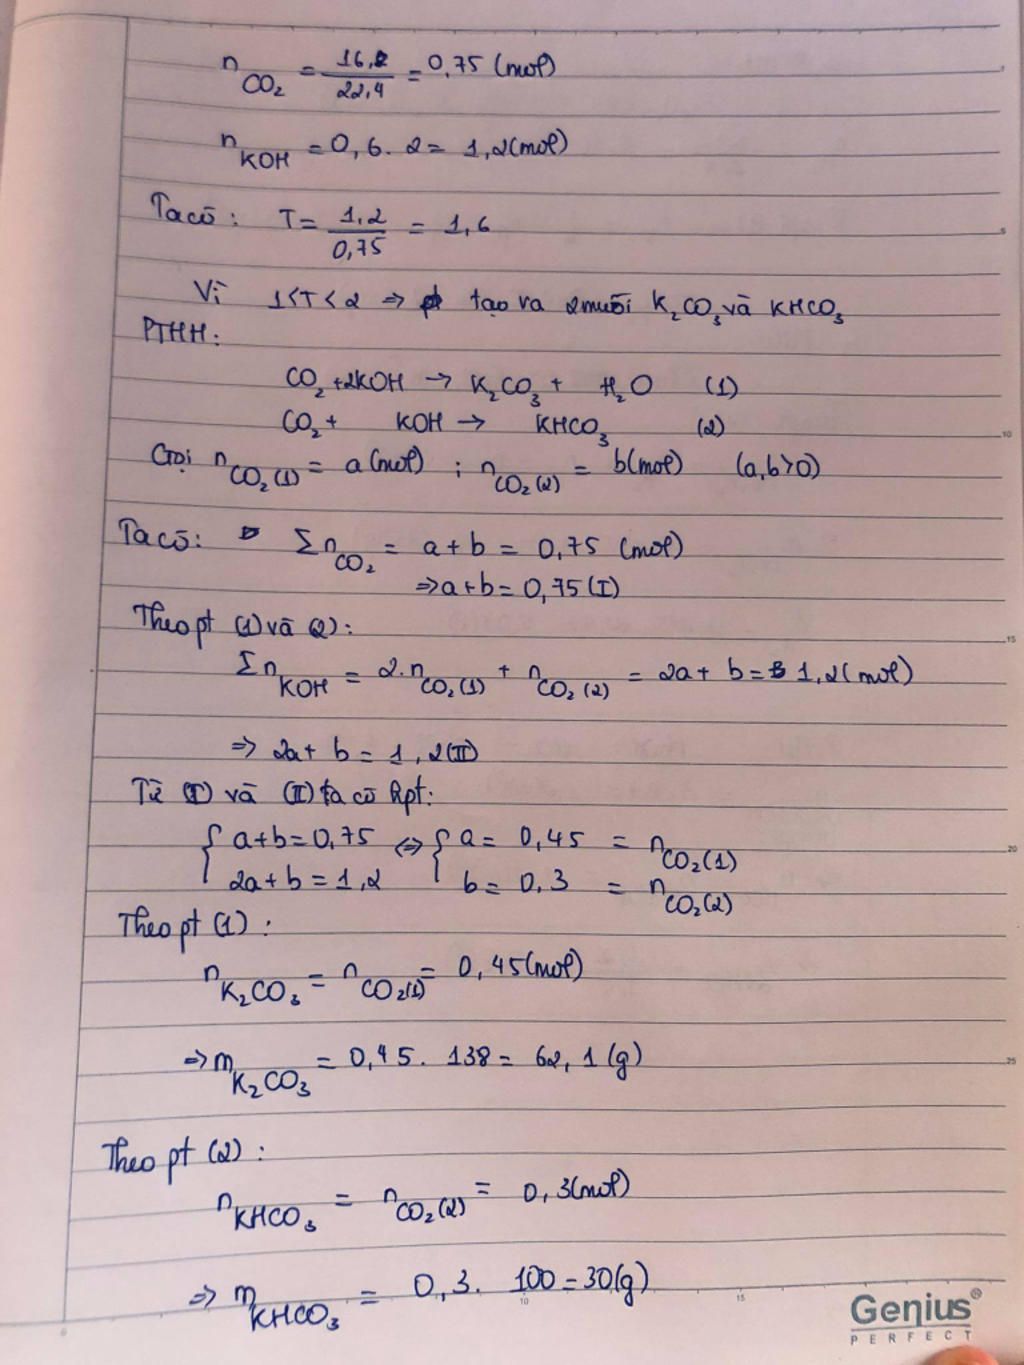 n_CO₂ = 16,8/22,4 = 0,75 (mol)
n_KOH = 0,6. 2 = 1,2 (mol)
Ta có : T = 1,2/0,75 = 1,6
Vì 1<T<2 => tạo ra 2 muối K₂CO₃ và KHCO₃
PTHH:
CO₂ + 2KOH → K₂CO₃ + H₂O (1)
CO₂ + KOH → KHCO₃ (2)
Gọi n_CO₂(1) = a (mol) ; n_CO₂(2) = b (mol) (a,b>0)
Ta có: Σn_CO₂ = a + b = 0,75 (mol)
=> a+b = 0,75 (I)
Theo pt (1) và (2):
Σn_KOH = 2.n_CO₂(1) + n_CO₂(2) = 2a + b = 1,2 (mol)
=> 2a + b = 1,2 (II)
Từ (I) và (II) ta có hpt:
{ a+b = 0,75 <=> { a = 0,45 = n_CO₂(1)
2a + b = 1,2 b = 0,3 = n_CO₂(2)
Theo pt (1) :
n_K₂CO₃ = n_CO₂(1) = 0,45 (mol)
=> m_K₂CO₃ = 0,45. 138 = 62,1 (g)
Theo pt (2) :
n_KHCO₃ = n_CO₂(2) = 0,3 (mol)
=> m_KHCO₃ = 0,3. 100 = 30 (g)
Genius®
PERFECT